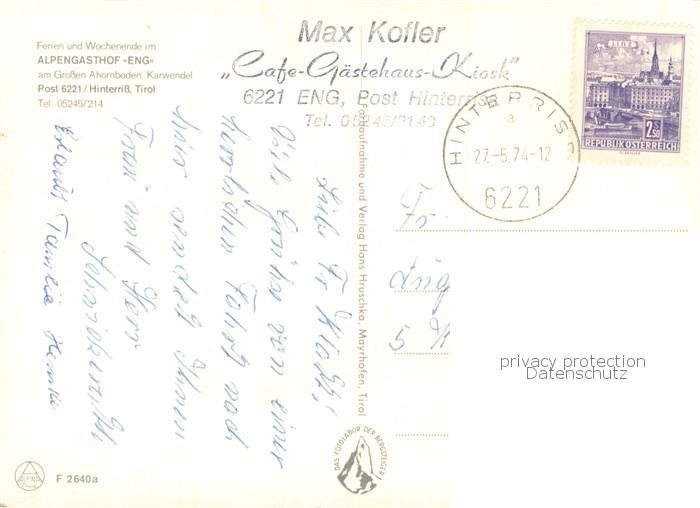 Ferien und Wochenende im
ALPENGASTHOF »ENG«
am Großen Ahornboden, Karwendel
Post 6221 / Hinterriß, Tirol
Tel. 05245/214
Max Kofler
„Cafe-Gästehaus-Kiosk"
6221 ENG, Post Hinterriß
Tel. 05245/21
LINZ
2.50
REPUBLIK ÖSTERREICH
HINTERRISS
a
27.-5.74-12
6221
Liebe Fr
Viele Grüße von einer
herrlichen Fahrt nach
hier sendet Ihnen
Frau und Herr
Familie
Fr.
5
Farbaufnahme und Verlag Hans Hruschka, Mayrhofen, Tirol
privacy protection
Datenschutz
DAS FOTOLABOR DER BERGSTEIGER
F 2640a